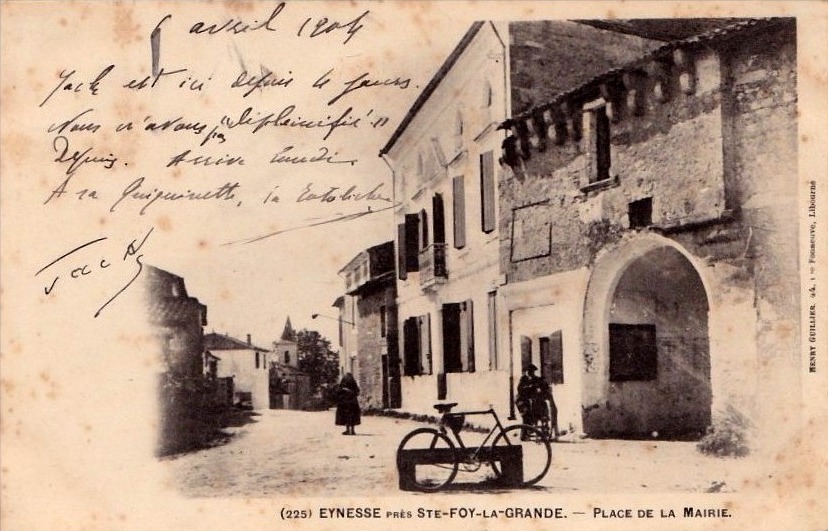 6 avril 1904
Jack est ici depuis 4 jours.
Nous n'avons pas "displeinifié"
Depuis. Arrive lundi
A sa Guiguinette, sa
Jack
HENRY GUILLIER, éd. Libourne
(225) EYNESSE PRÈS STE-FOY-LA-GRANDE. — PLACE DE LA MAIRIE.